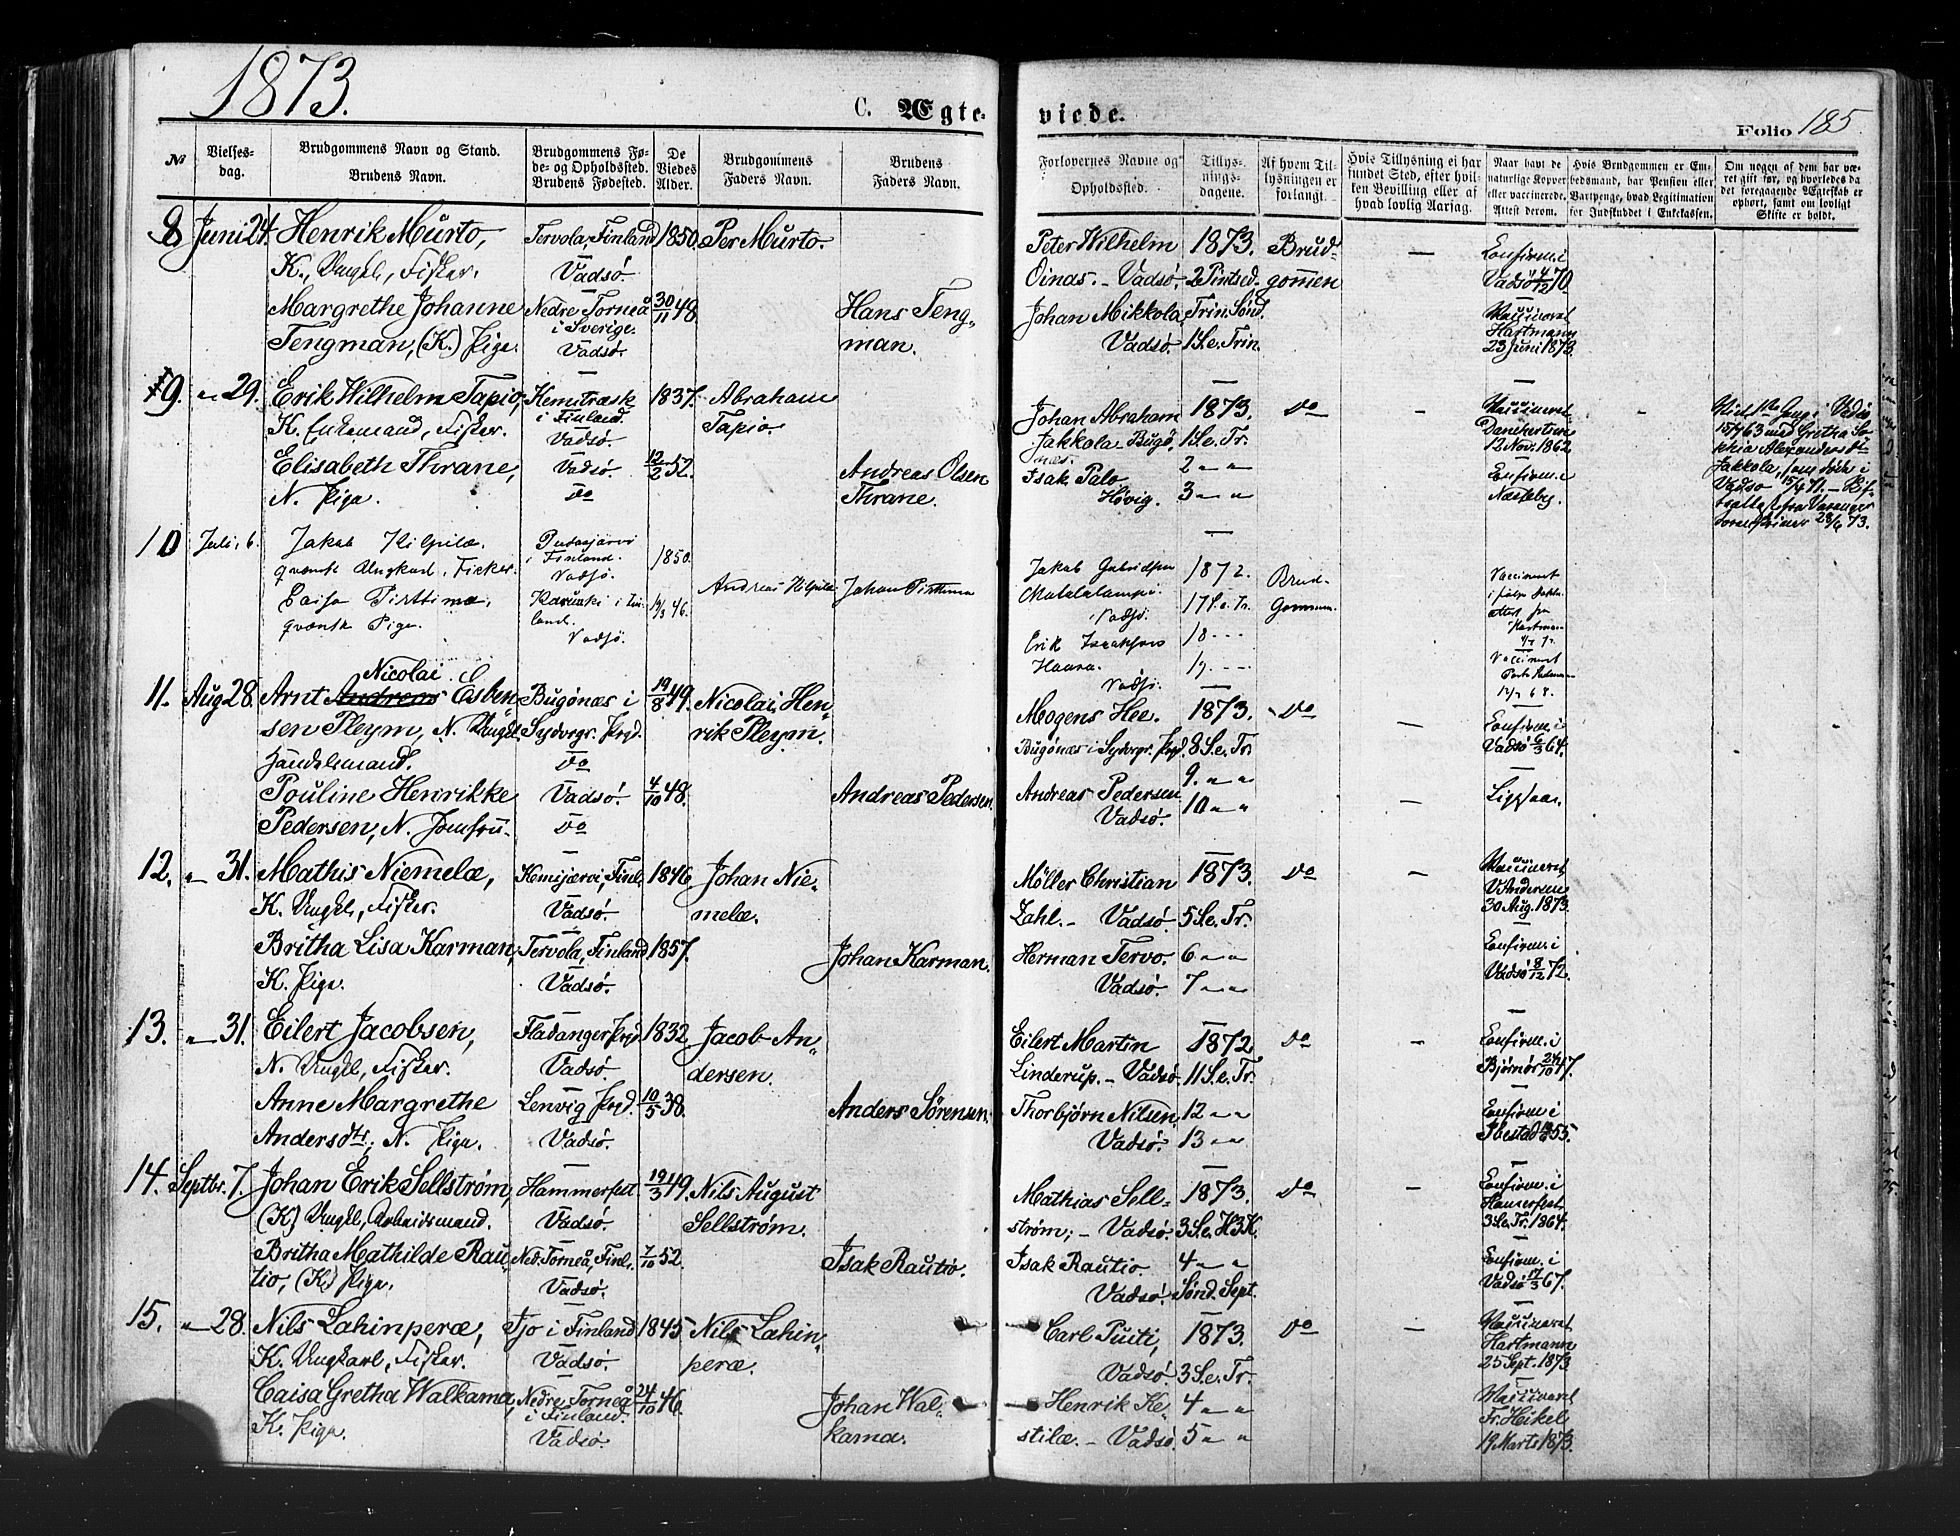 1873.
C. Ægte-
viede.
Folio 185.
№
Vielses-
dag.
Brudgommens Navn og Stand.
Brudens Navn.
Brudgommens Fø-
de- og Opholdssted.
Brudens Fødested.
De
Viedes
Alder.
Brudgommens
Faders Navn.
Brudens
Faders Navn.
Forlovernes Navne og
Opholdssted.
Tillys-
nings-
dagene.
Af hvem Til-
lysningen er
forlangt.
Hvis Tillysning ei har
fundet Sted, efter hvil-
ken Bevilling eller af
hvad lovlig Aarsag.
Naar havt de
naturlige Kopper
eller vaccinerede.
Attest derom.
Hvis Brudgommen er Em-
bedsmand, har Pension eller
Vartpenge, hvad Legitimation
for Indskuddet i Enkekassen.
Om nogen af dem har væ-
ret gift før, og hvorledes da
det foregaaende Ægteskab er
ophørt, samt om lovligt
Skifte er holdt.
8 Juni 24. Henrik Murto, Tervola, Finland 1850. Per Murto.
K., Ungk., Fisker. Vadsø.
Margrethe Johanne Nedre Torneå 30/11 48. Hans Teng-
Tengman, (K.) Pige. i Sverige. man.
Vadsø.
Peter Wilhelm 1873. Brud- — Confirm. i
Oinas. - Vadsø. 2 Pintsed. gommen Vadsø 4/12 70
Johan Mikkola, Trin. Sønd. Vaccineret
Vadsø. 1 S. e. Trin. Hartmann
23 Juni 1873.
9. " 29. Erik Wilhelm Tapio, Kemitræsk 1837. Abraham
K. Enkemand, Fisker. i Finland. Tapio.
Vadsø.
Elisabeth Thrane, Vadsø. 12/2 52. Andreas Olsen
N. Pige. do Thrane.
Johan Abraham 1873. do - Vaccineret -
Jakkola, Bugø- 1 S. e. Tr.
næs. 2 " " 12 Nov. 1862
Isak Palo 3 " " Confirm. i
Høvig. Næsseby.
15/7 63 med Gretha So-
phia Alexandersdtr
Jakkola, som døde i
Vadsø 15/4 71.
10 Juli 6. Jakob Kilpilæ. Pudasjærvi 1850.
qvensk Ungkarl, Fisker. i Finland.
Vadsø. Andreas Kilpilæ Johan Pirttimæ
Caisa Pirttimæ, Karunki i Fin- 19/3 46.
qvænsk Pige. land.
Vadsø.
Jakob Gabrielsen 1872. Brud- Vaccineret
Matalalampi. 17 S. e. Tr. Gommen.
Vadsø.
Erik Isaksen 18 - - -
Haara. 19 - - - Vaccineret
Vadsø.
11. Aug 28. Arnt Nicolai Esben- Bugønæs i 19/8 49. Nicolai Hen-
sen Pleym, N. Ungk. Sydvgr. Prgd. rik Pleym.
Handelsmand. do
Pouline Henrikke Vadsø. 4/10 48. Andreas Pedersen.
Pedersen, N. Jomfru. do
Mogens Hee. 1873. do — Confirm. i -
Bugønæs i Sydvgr. Prgd. 8 S. e. Tr. Vadsø 6/3 64.
Andreas Pedersen 9. " "
Vadsø. 10 " " —
12. " 31. Mathis Niemelæ, Kemijærvi, Finl. 1846. Johan Nie-
K. Ungk., Fisker. Vadsø. melæ.
Britha Lisa Karman, Tervola, Finland 1857. Johan Karman.
K. Pige. Vadsø.
Møller Christian 1873. do — Vaccineret
Zahl. - Vadsø. 5 S. e. Tr. 30 Aug. 1873.
Herman Tervo. 6 " " Confirm. i
Vadsø. 7 " " Vadsø 8/12 72.
13. " 31. Eilert Jacobsen, Fladanger Prgd. 1832 Jacob An-
N. Ungk., Fisker. Vadsø. dersen.
Anne Margrethe Lenvig Prgd. 10/5 38. Anders Sørensen.
Andersdtr, N. Pige. Vadsø.
Eilert Martin 1872 do - Confirm. i
Linderup. - Vadsø. 11 S. e. Tr. Bjørnør 24/10 47.
Thorbjørn Nilsen, 12 " " Confirm. i
Vadsø. 13 " " Ibestad 55.
14. Septbr. 7. Johan Erik Sellstrøm, Hammerfest 19/3 49. Nils August
(K) Ungk., Arbeidsmand. Vadsø. Sellstrøm.
Britha Mathilde Rau- Ned. Torneå, Finl. 7/10 52. Isak Rautio.
tio, (K.) Pige. Vadsø.
Mathias Sell- 1873. do - Confirm. i
strøm; - Vadsø. 3 S. e. H3K. Hamerfest
Isak Rautio. 4 " " 3 S. e. Tr. 1864.
Vadsø. Sønd. Sept. Confirm. i
Vadsø 17/3 67.
15. " 28. Nils Lahinperæ, Ijo i Finland 1845 Nils Lahin-
K. Ungkarl, Fisker. Vadsø. peræ.
Caisa Gretha Walkama, Nedre Torneå 24/10 46. Johan Wal-
K. Pige. i Finland. kama.
Vadsø.
Carl Puiti, 1873. do — Vaccineret
Vadsø. 3 S. e. Tr. Hartmann
Henrik Ke- 4 " " 25 Sept. 1873
stilæ. - Vadsø. 5 " " Vaccineret
Fr. Heikel
19 Marts 1873.